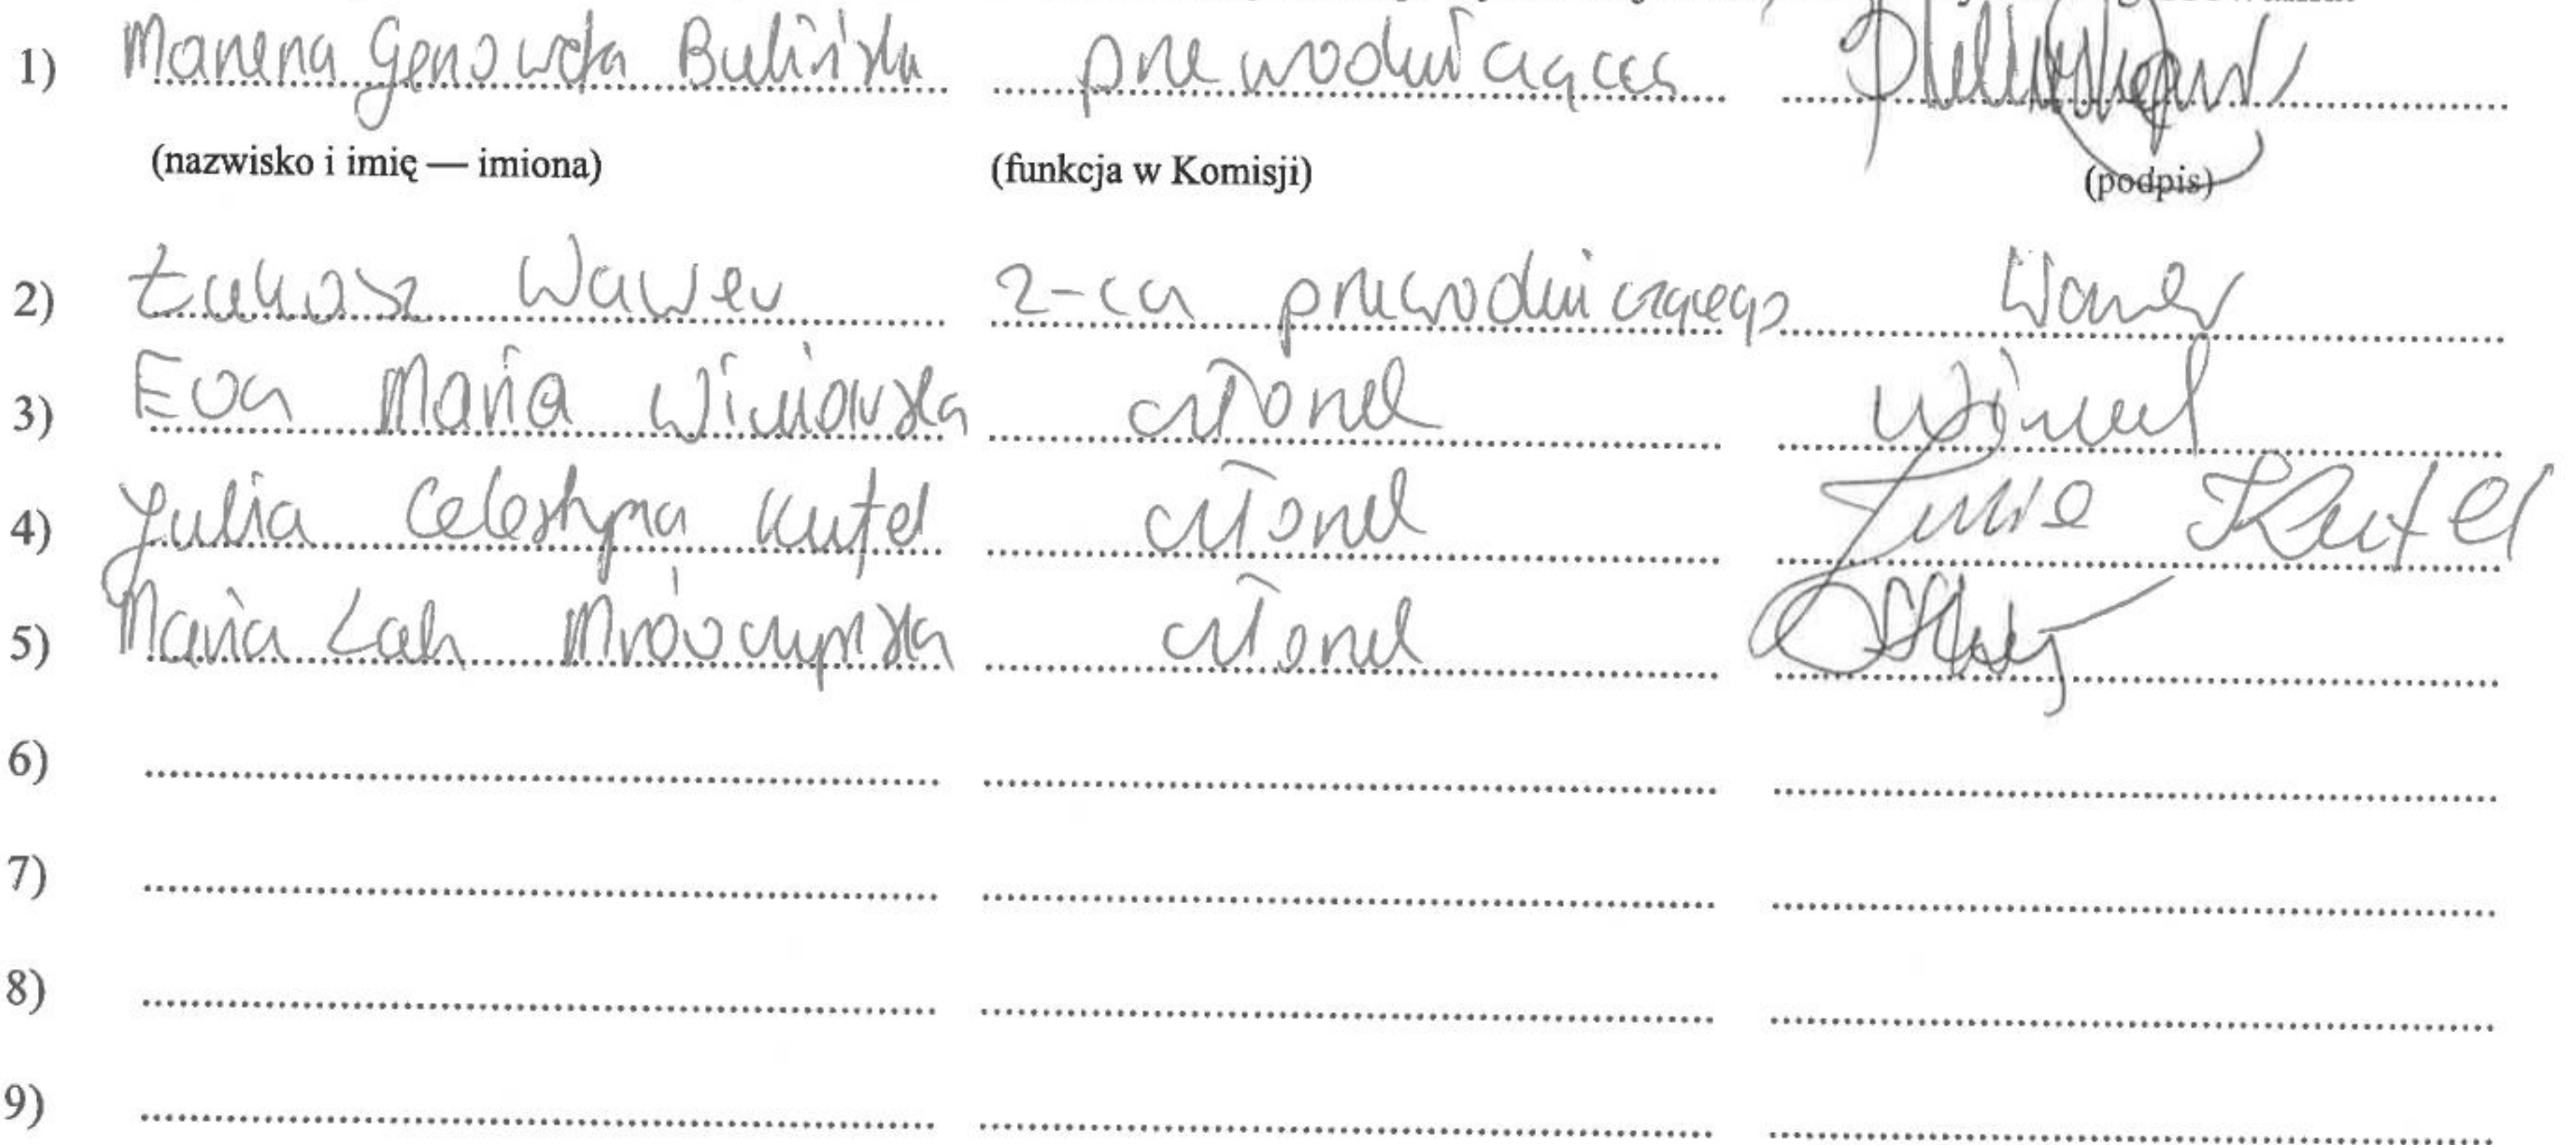 1) Marzena Genowefa Bulińska przewodnicząca
(nazwisko i imię — imiona) (funkcja w Komisji) (podpis)
2) Łukasz Wawer z-ca przewodniczącego Wawer
3) Ewa Maria Winiowska członek
4) Julia Celestyna Kufel członek Julia Kufel
5) Maria Lah członek
6)
7)
8)
9)